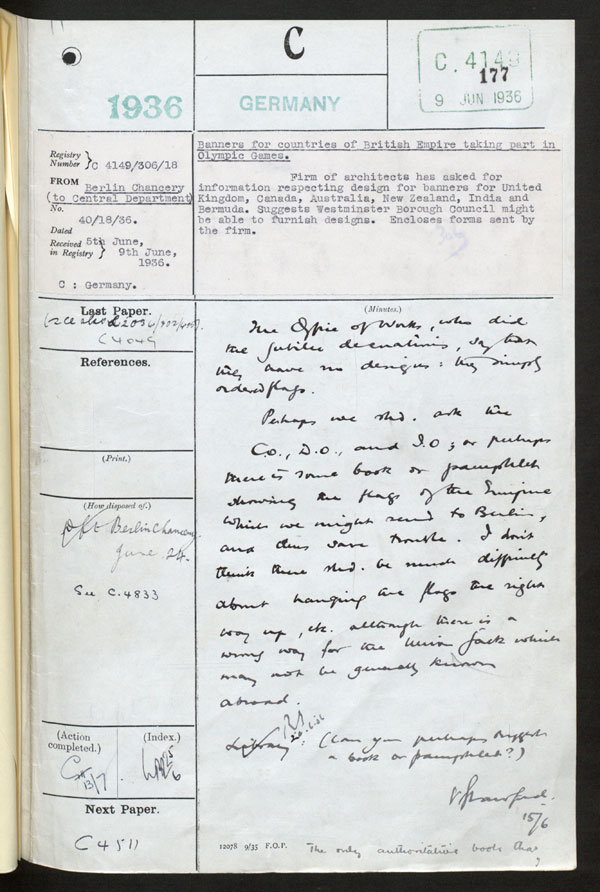 C
1936
GERMANY
C. 4149
177
9 JUN 1936
Registry Number } C 4149/306/18
FROM Berlin Chancery
(to Central Department)
No. 40/18/36.
Dated 5th June,
Received in Registry } 9th June,
1936.
C : Germany.
Banners for countries of British Empire taking part in
Olympic Games.
Firm of architects has asked for
information respecting design for banners for United
Kingdom, Canada, Australia, New Zealand, India and
Bermuda. Suggests Westminster Borough Council might
be able to furnish designs. Encloses forms sent by
the firm.
Last Paper.
C4049
References.
(Print.)
(How disposed of.)
Berlin Chancery
June 24
See C.4833
(Action completed.)
13/7
(Index.)
Next Paper.
C4511
(Minutes.)
The Office of Works, who did
the Jubilee decorations, say that
they have no designs: they simply
ordered flags.
Perhaps we shd. ask the
C.O., D.O., and I.O; or perhaps
there is some book or pamphlet
showing the flags of the Empire
which we might send to Berlin,
and thus save trouble. I don't
think there shd. be much difficulty
about hanging the flags the right
way up, etc. although there is a
wrong way for the Union Jack which
may not be generally known
abroad.
Library: (Can you perhaps suggest
a book or pamphlet?)
15/6
12078 9/35 F.O.P.
The only authoritative book that